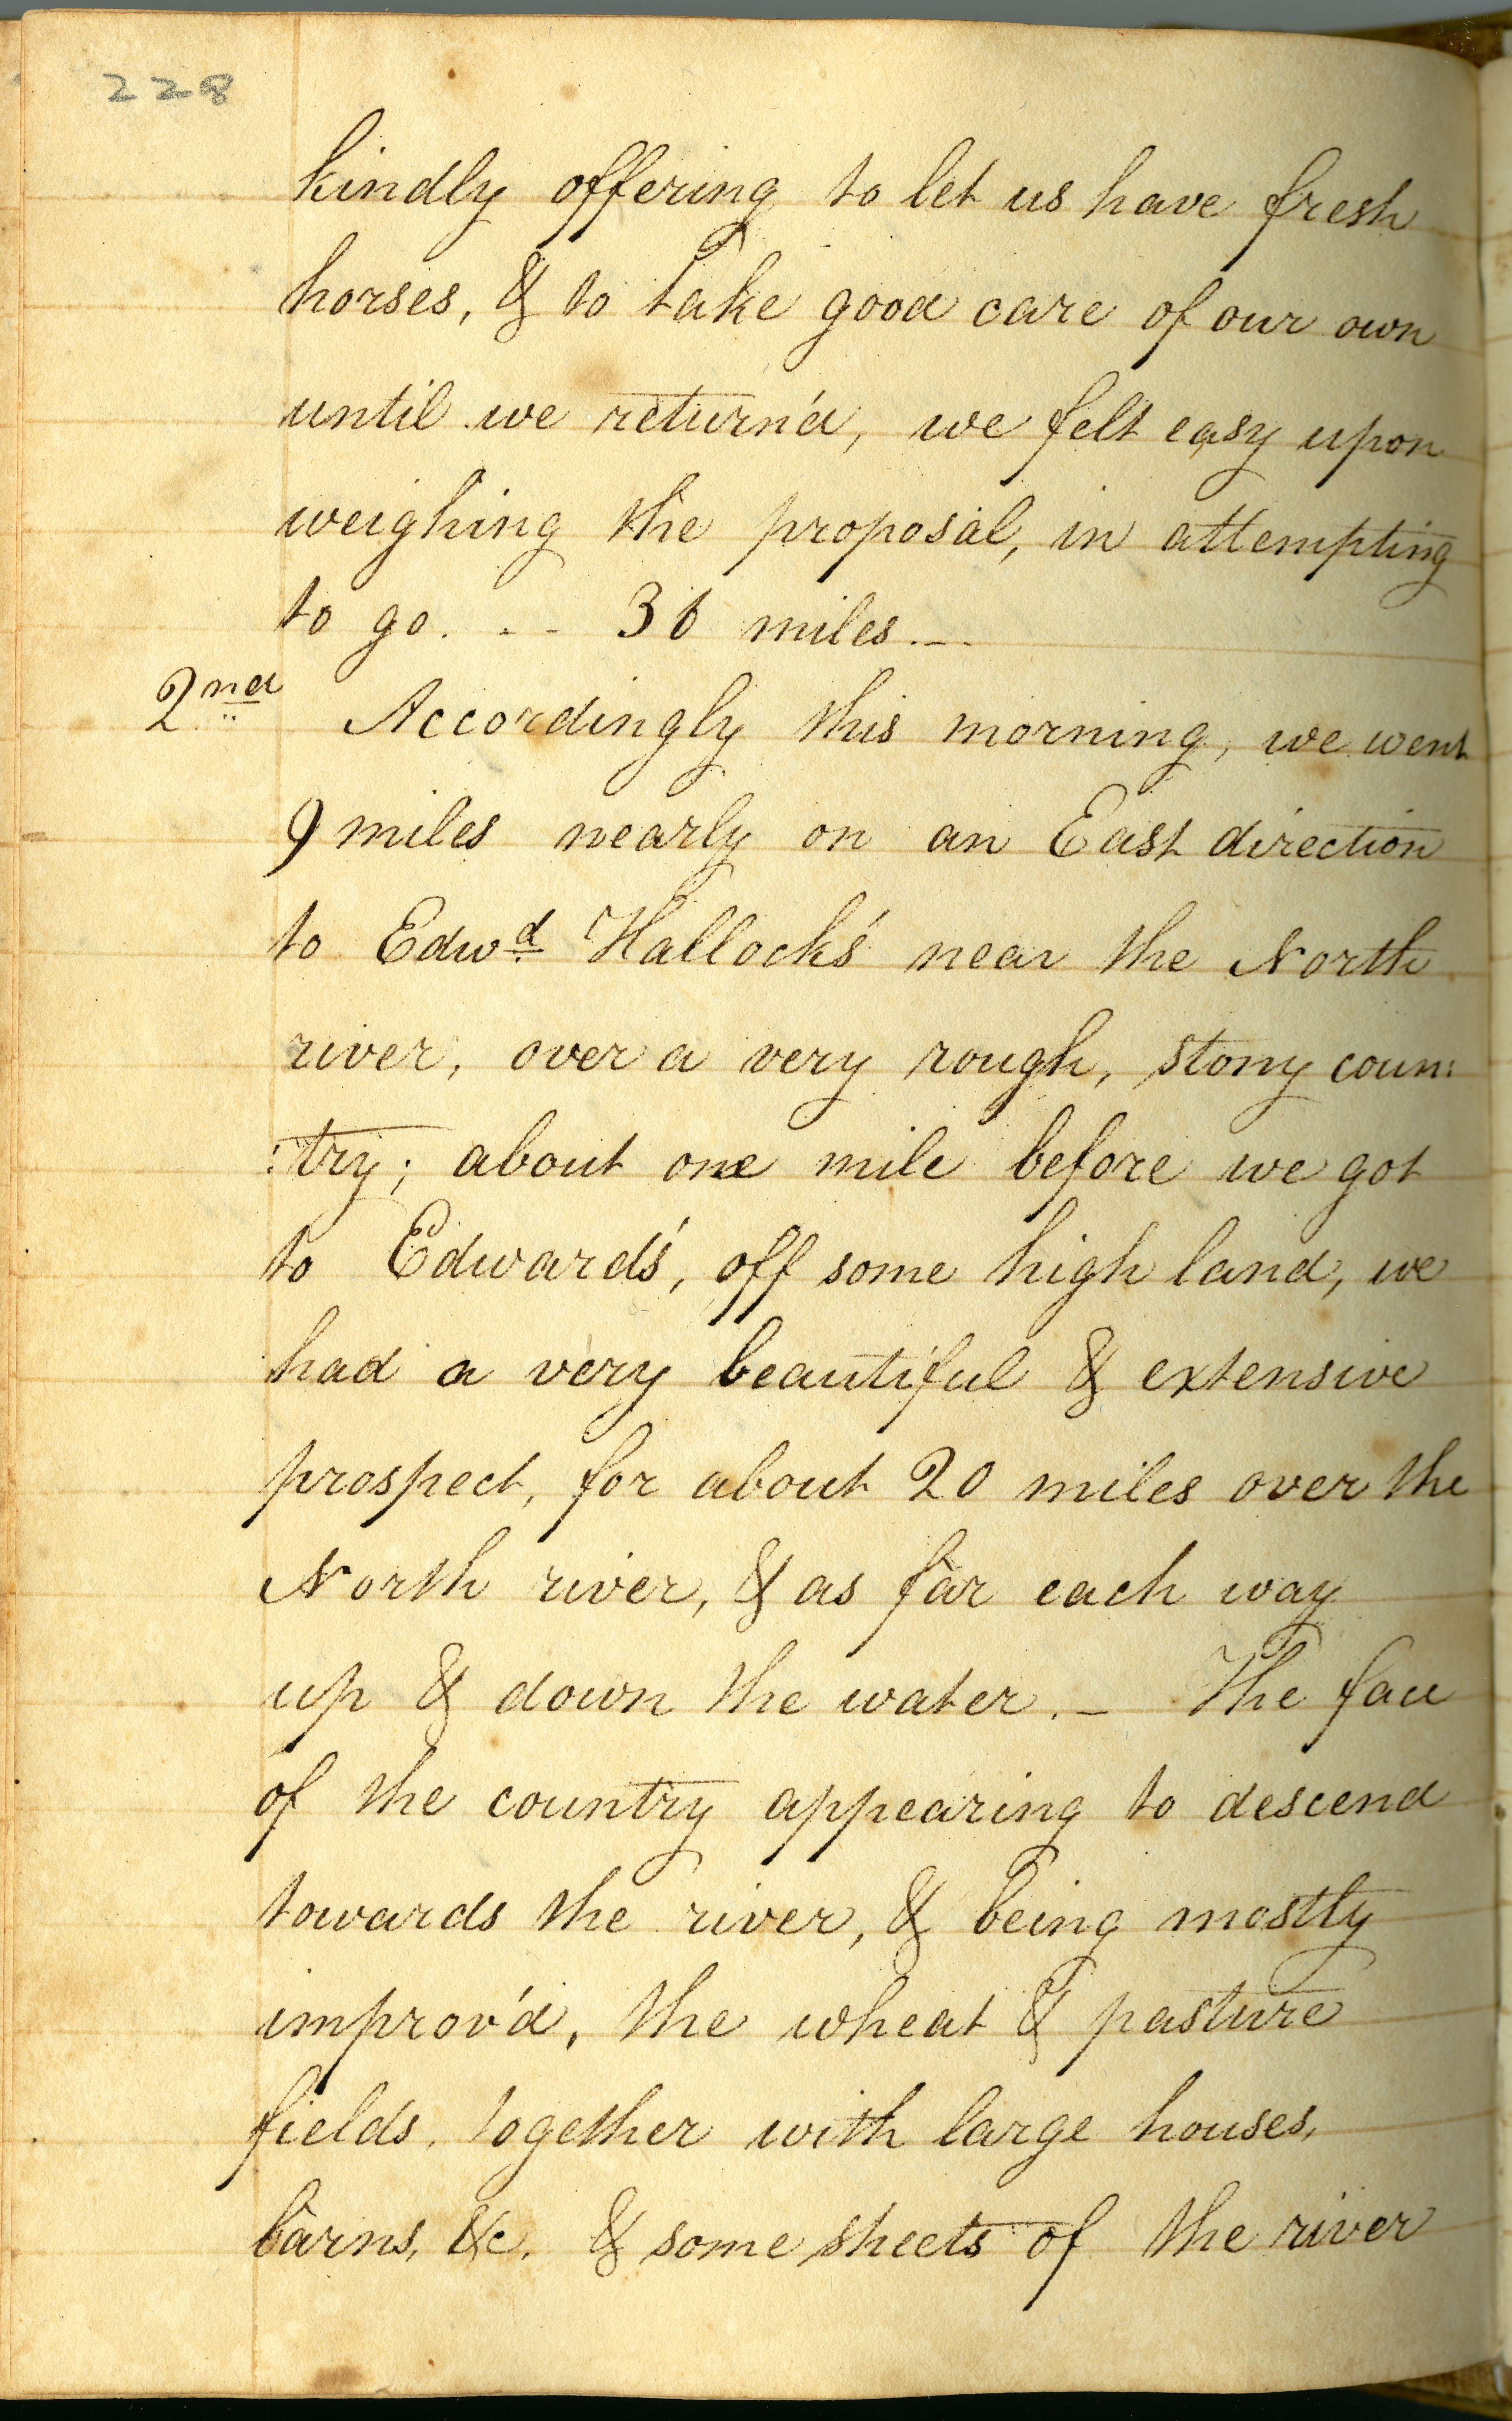 228
kindly offering to let us have fresh
horses, & to take good care of our own
until we return'd, we felt easy upon
weighing the proposal, in attempting
to go. - - 36 miles.—
2nd Accordingly this morning, we went
9 miles nearly on an East direction
to Edwd. Hallock's near the North
river, over a very rough, stony coun:
:try; about one mile before we got
to Edward's, off some high land, we
had a very beautiful & extensive
prospect, for about 20 miles over the
North river, & as far each way
up & down the water. — The face
of the country appearing to descend
towards the river, & being mostly
improv'd, the wheat & pasture
fields, together with large houses,
barns, &c. & some sheets of the river